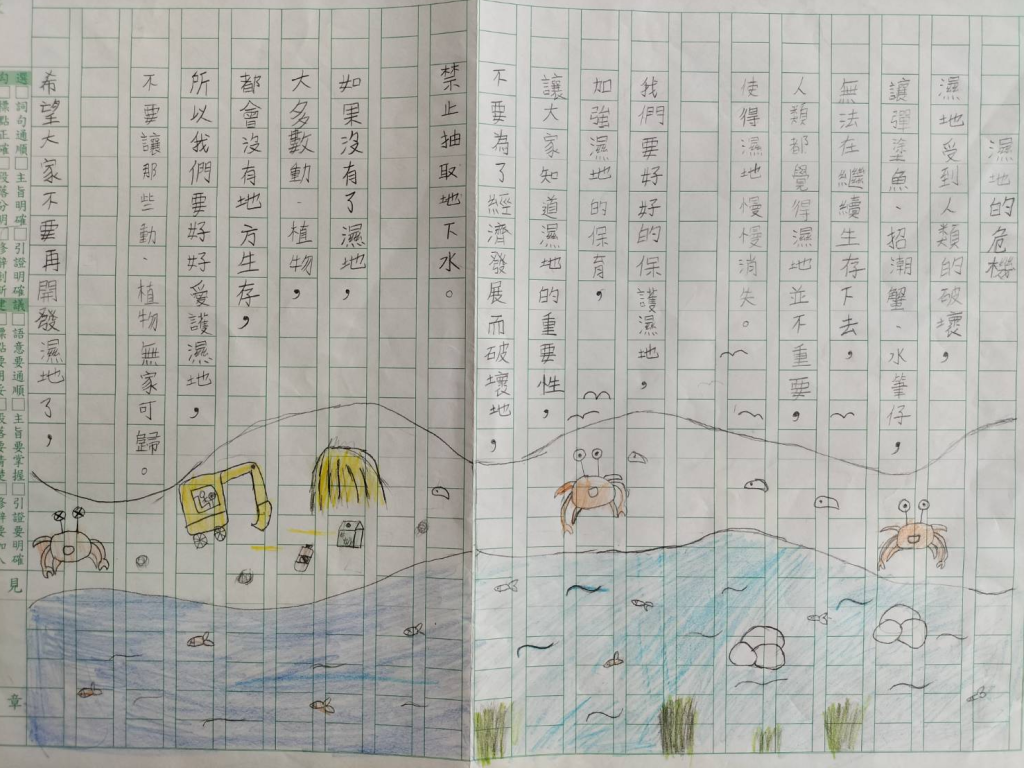 濕地的危機
濕地受到人類的破壞，
讓彈塗魚、招潮蟹、水筆仔，
無法在繼續生存下去，
人類都覺得濕地並不重要，
使得濕地慢慢消失。
我們要好好的保護濕地，
如強濕地的保育，
讓大家知道濕地的重要性，
不要為了經濟發展而破壞地，
禁止抽取地下水。
如果沒有了濕地，
大多數動、植物，
都會沒有地方生存，
所以我們要好好愛護濕地，
不要讓那些動、植物無家可歸。
希望大家不要再開發濕地了，
詞句通順 主旨明確 引證明確 語意要通順 主旨要掌握 引證要明確
標點正確 段落分明
見
章